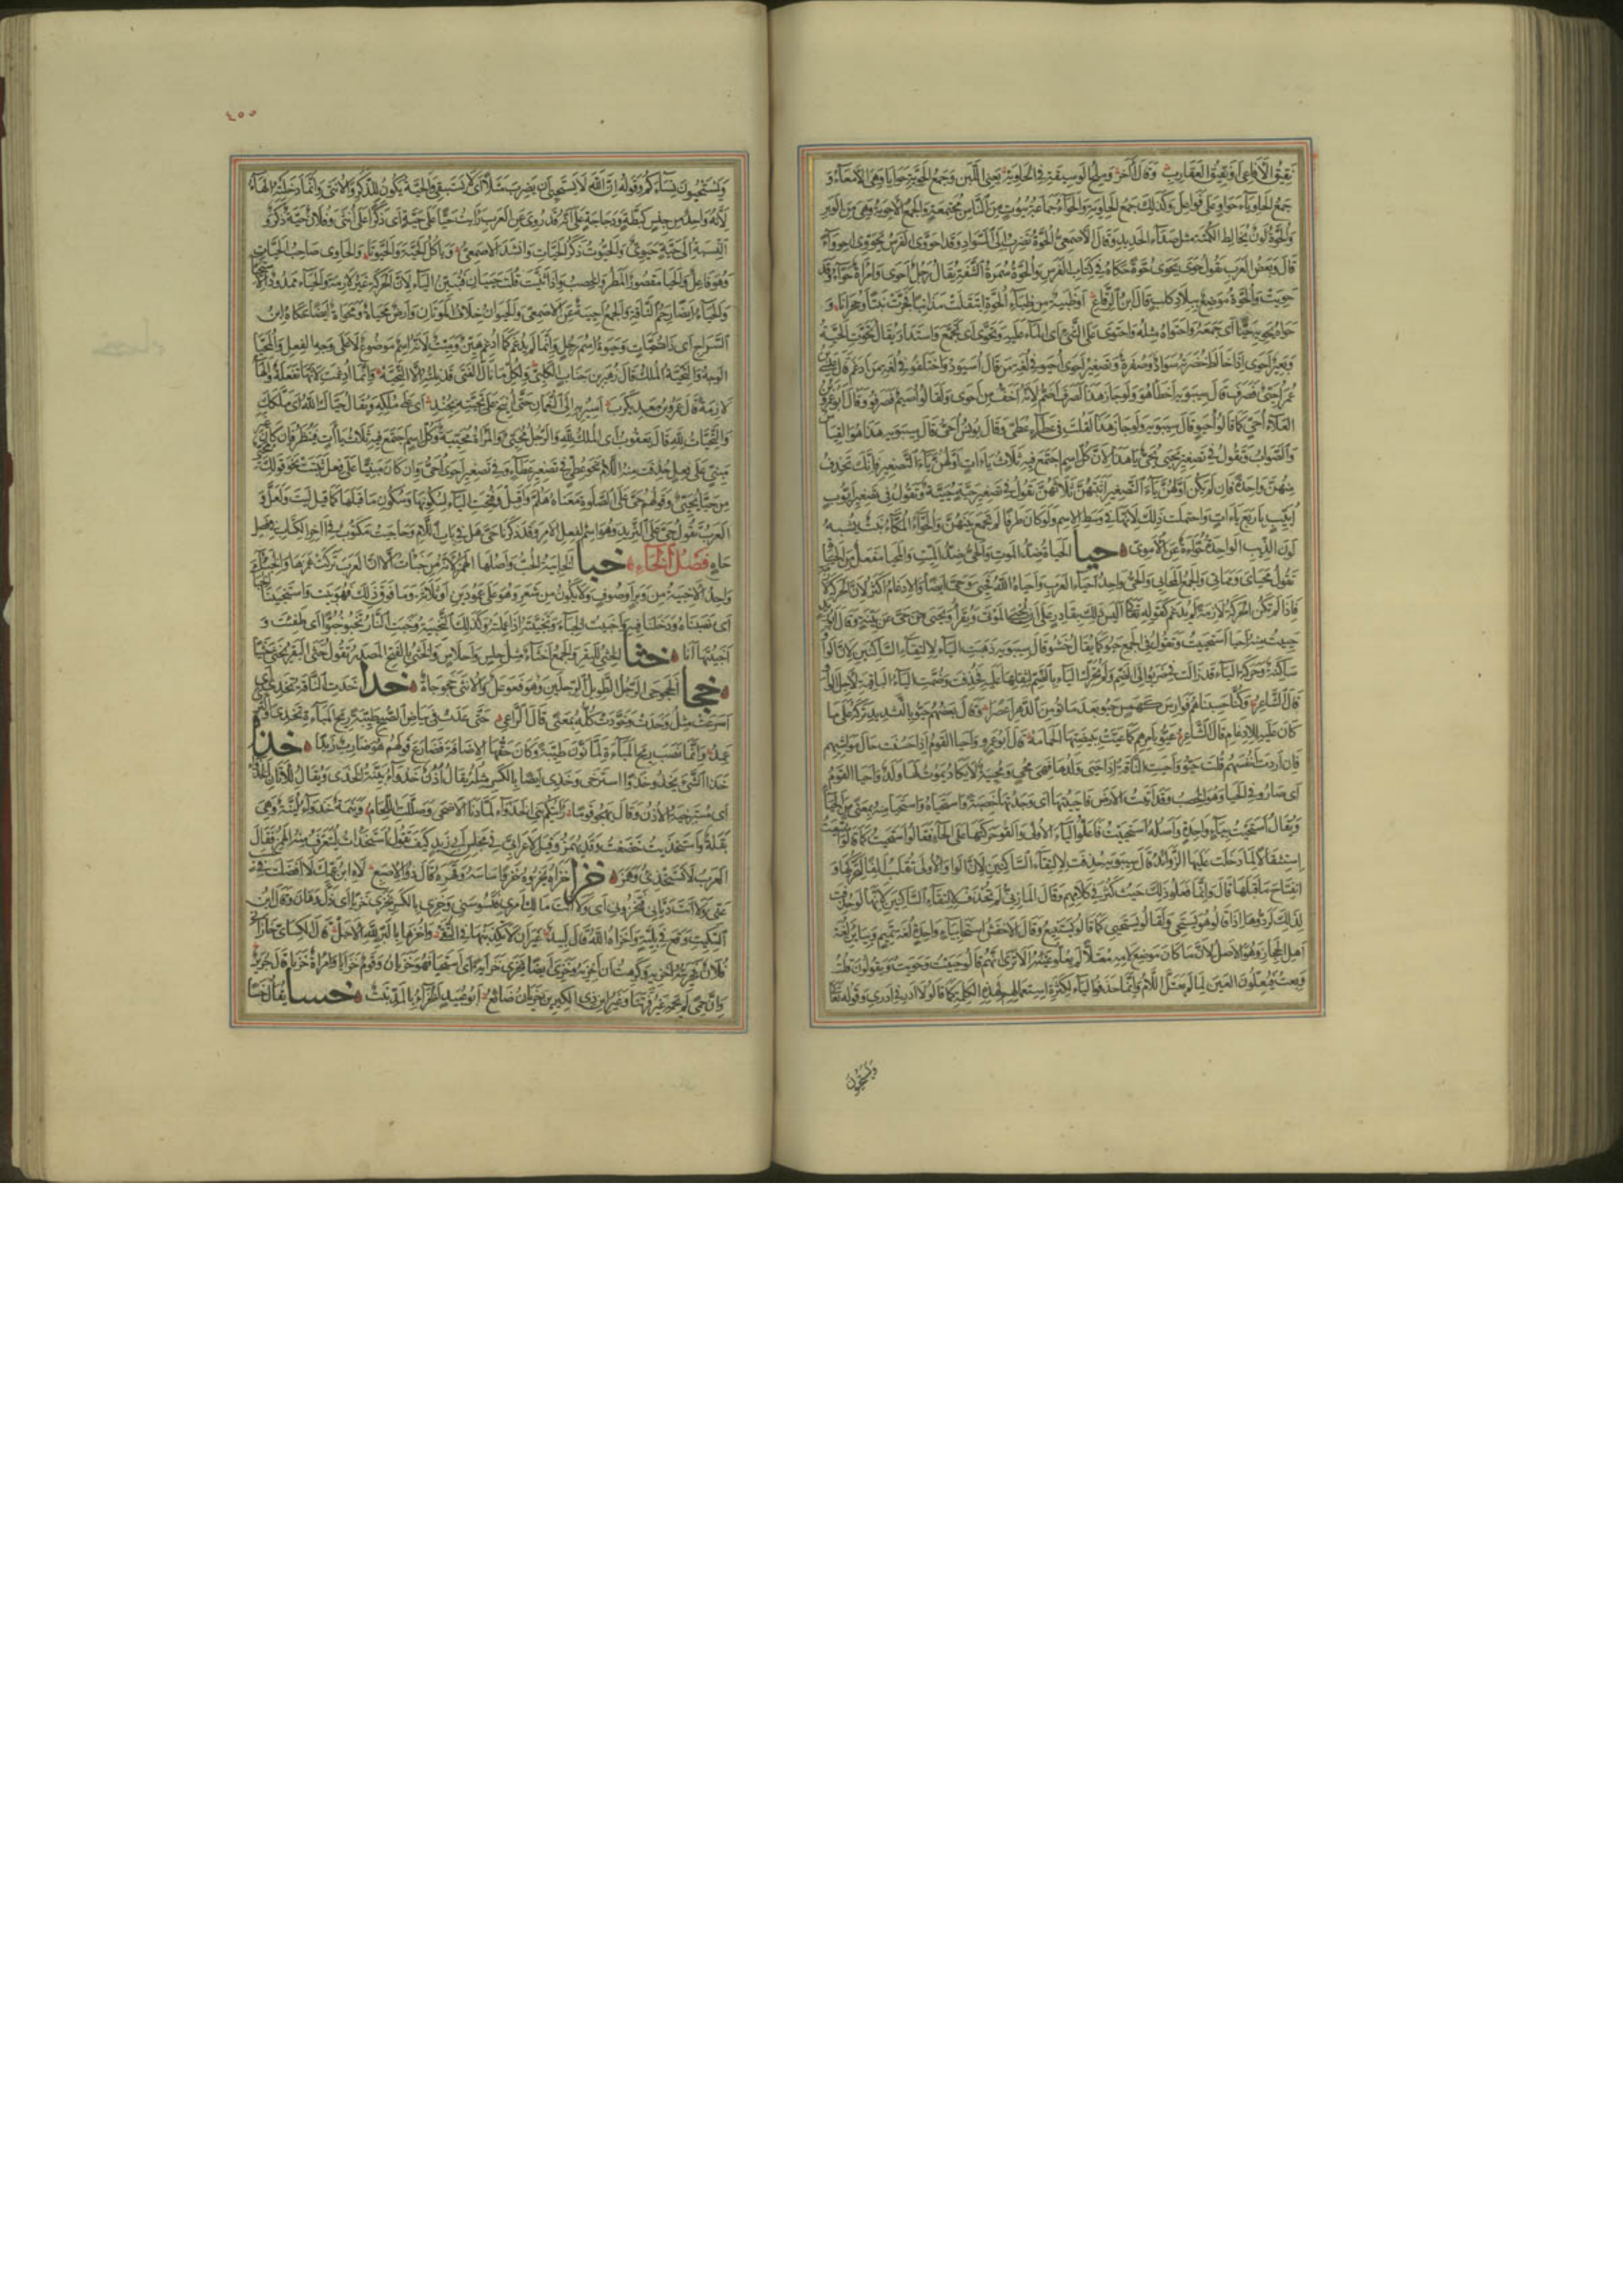 تقيق الافاعى او تقيق العقارب وقال آخر وملح الوسيقة فى الحاوية يعنى اللبن وجمع الحوية حوايا وهى الامعاء و
جمع الحاوياء حواوى على فواعل وكذلك جمع الحاوية والحواء جماعة بيوت من الناس مجتمعة والجمع الاحوية وهى من الوبر
والحوة لون يخالط الكمتة مثل صداء الحديد وقال الاصمعى الحوة حمرة تضرب الى السواد وقد احووى الفرس يحووى احوواء
قال وبعض العرب تقول حوى يحوى حوة حكاه فى كتاب الفرس والحوة سمرة الشفة يقال رجل احوى وامرأة حواء وقد
حويت والحوة موضع ببلاد كلب قال ابن الرقاع او ظبية من ظباء الحوة انتقلت مذانبا فجرت نبتا وحجرانا و
حواه يحويه حيا اى جمعه واحتواه مثله واحتوى على الشئ اى الماء عليه وتحوى اى تجمع واستدار يقال تحوت الحية
وبعير احوى اذا خالط خضرته سواد وصفرة وتصغير احوى احيو فى لغة من قال اسيود واختلفوا فى لغة من ادغم قال عيسى بن
عمر احيى فصرف قال سيبويه اخطا هو ولو جاز هذا لصرف اصم لانه اخف من احوى ولقالوا اصيم فصرفوا وقال ابو عمرو بن
العلاء احى كما قالوا احيو قال سيبويه ولو جاز هذا لقلت فى عطاء عطى وقال يونس احى قال سيبويه هذا هو القياس
والصواب وتقول فى تصغير يحيى يحى يا هذا لان كل اسم اجتمع فيه ثلاث ياءات اولهن ياء التصغير فانك تحذف
منهن واحدة فان لم يكن اولهن ياء التصغير اثبتهن ثلاثتهن تقول فى تصغير حية حيية وتقول فى تصغير ايوب
اييب باربع ياءات واحتملت ذلك لانها فى وسط الاسم ولو كان طرفا لم تجمع بينهن والحواء المكاء نبت يشبه
لون الذيب الواحدة حواءة عن الاموى حيا الحياة ضد الموت والحى ضد الميت والمحيا مفعل من الحياة
تقول محياى ومماتى والجمع المحايى والحى واحد احياء العرب واحياه الله فحيى وحى ايضا والادغام اكثر لان الحركة لازمة
فاذا لم تكن الحركة لازمة لم يدغم كقوله تعالى اليس ذلك بقادر على ان يحيى الموتى ويقرأ ويحيى من حى عن بينة وقال ابو زيد
حييت منه احيا استحييت وتقول فى الجمع حيوا كما يقال خشوا قال سيبويه ذهبت الياء لالتقاء الساكنين لان الواو
ساكنة وحركة الياء قد زالت كما زالت فى ضربوا الى الضم ولم تحرك الياء بالضم لثقله عليها فحذفت وضمت الياء الباقية لاجل الواو
قال الشاعر وكنا حسبناهم فوارس كهمس حيوا بعد ما ماتوا من الدهر اعصرا وقال بعضهم حيوا بالتشديد تركه على ما
كان عليه للادغام قال الشاعر عيوا بامرهم كما عيت ببيضتها الحمامة قال ابو عمرو واحيا القوم اذا حسنت حال مواشيهم
فان اردت انفسهم قلت حيوا واحيت الناقة اذا حيى ولدها فهى محى ومحيية لا يكاد يموت لها ولد واحيا القوم
اى صاروا فى الحيا وهو الخصب وقد اتيت الارض فاحييتها اى وجدتها خصبة واستحياه واستحيا منه بمعنى من الحياء
ويقال استحيت بياء واحدة واصله استحييت فاعلوا الياء الاولى والقوا حركتها على الحاء فقالوا استحيت كما قالوا استبعت
استثقالا لما دخلت عليها الزوائد قال سيبويه حذفت لالتقاء الساكنين لان الواو الاولى تقلب الفا لتحركها و
انفتاح ما قبلها قال وانما فعلوا ذلك حيث كثر فى كلامهم وقال المازنى لم تحذف لالتقاء الساكنين لانها لو حذفت
لذلك لردوها اذا قالوا هو يستحى ولقالوا يستحيى كما قالوا يستبيع وقال الاخفش استحى بياء واحدة لغة تميم وبيائين لغة
اهل الحجاز وهو الاصل لان ما كان موضع لامه معتلا لم يعلوا عينه الا ترى انهم قالوا حييت وحويت ويقولون قلت
وبعت فيعلون العين لما لم يعتل اللام وانما حذفوا الياء لكثرة استعمالهم لهذه الكلمة كما قالوا لا ادر فى ادرى وقوله تعالى
ويستحيون
٤٥٥
ويستحيون نساءكم وقوله ان الله لا يستحيى ان يضرب مثلا اى لا يستبقى والحية يكون للذكر والانثى وانما دخلته الهاء
لانه واحد من جنس كبطة ودجاجة على انه قد روى عن العرب رايت حيا على حية اى ذكرا على انثى وفلان حية ذكر و
النسبة الى حية حيوى والحيوت ذكر الحيات وانشد الاصمعى وياكل الحية والحيوتا والحاوى صاحب الحيات
وهو فاعل والحيا مقصور المطر والخصب واذا ثنيت قلت حييان فتبين الياء لان الحركة غير لازمة والحياء ممدود الاستحياء
والحياء ايضا رحم الناقة والجمع احيية عن الاصمعى والحيوان خلاف الموتان وارض محياة ومحواة ايضا حكاه ابن
السراج اى ذات حيات وحيوة اسم رجل وانما لم يدغم كما ادغم هين وميت لانه اسم موضوع لا على وجه الفعل والمحيا
الوجه والتحية الملك قال زهير بن جناب الكلبى ولكل ما نال الفتى قد نلته الا التحية وانما ادغمت لانها تفعلة والهاء
لازمة قال عمرو بن معديكرب اسير به الى النعمان حتى انيخ على تحيته بجند اى على ملكه ويقال حياك الله اى ملكك
والتحيات لله قال يعقوب اى الملك لله والرجل محيى والمرأة محيية وكل اسم اجتمع فيه ثلاث ياءات فينظر فان كان غير
مبنى على فعل حذفت منه اللام نحو عطى فى تصغير عطاء وفى تصغير احوى احى وان كان مبنيا على فعل ثبتت نحو قولك
من حيا يحيى وقولهم حى على الصلوة معناه هلم واقبل وفتحت الياء لسكونها وسكون ما قبلها كما قيل ليت ولعل و
العرب تقول حى على الثريد وهو اسم لفعل الامر وقد ذكرنا حى هل فى باب اللام وحاحيت مكتوب فى آخر الكتاب فى فصل
حاء فصل الخاء خبا الخابية الحب واصلها الهمز لانه من خبأت الا ان العرب تركت همزها والخباء
واحد الاخبية من وبر او صوف ولا يكون من شعر وهو على عمودين او ثلاثة وما فوق ذلك فهو بيت واستخبينا
اى نصبناه ودخلنا فيه واخبيت الخباء وتخبيته اذا عملته وكذلك التخبية وخبت النار تخبو خبوا اى طفئت و
اخبيتها انا خثا الخثى للبقر والجمع اخثاء مثل حلس واحلاس والخثى بالفتح المصدر تقول خثى البقر يخثى خثيا
خجا الخجوجى الرجل الطويل الرجلين وهو فعوعل والانثى خجوجاة خدا خدت الناقة تخدى اى
اسرعت مثل وخدت وخودت كله بمعنى قال الراعى حتى غدت فى بياض الصبح طيبة ريح المباءة تخدى والثرى
عمد وانما نصب ريح المباءة لما نون طيبة وكان حقها الاضافة فضارع قولهم هو ضارب زيدا خذا
خذا الشئ يخذو خذوا استرخى وخذى ايضا بالكسر مثله يقال اذن خذواء بينة الخذى ويقال للاتان الخذواء
اى مسترخية الاذن وقال يهجو قوما رايتكم بنى الخذواء لما دنا الاضحى وصللت اللحام وينمة خذواء لينة وهى
بقلة واستخذيت خضعت وقد يهمز وقيل لاعرابى فى مجلس ابى زيد كيف تقول استخذأت ليتعرف منه الهمز فقال
العرب لا تستخذئ وهمز خزا خزاه يخزوه خزوا ساسه وقهره قال ذو الاصبع لاه ابن عمك لا افضلت فى حسب
عنى ولا انت ديانى فتخزونى اى ولا انت مالك امرى فتسوسنى وخزى بالكسر يخزى خزيا اى ذل وهان وقال ابن
السكيت وقع فى بلية واخزاه الله قال لبيد غير ان لا تكذبنها فى التقى واخزها بالبر لله الاجل قال الكسائى خازانى
فلان فخزيته اخزيه وكرهت ان اخزيه وخزى ايضا يخزى خزاية اى استحيا فهو خزيان وقوم خزايا وامرأة خزيا قال جرير
وان حمى لم يحمه غير فرتنا وغير ابن ذى الكيرين خزيان ضائع ابو عبيد الخزاء بالمد نبت خسا يقال خسا